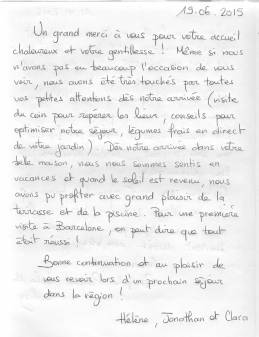 19.06.2015
Un grand merci à vous pour votre accueil
chaleureux et votre gentillesse ! Même si nous
n'avons pas eu beaucoup l'occasion de vous
voir, nous avons été très touchés par toutes
vos petites attentions dès notre arrivée (visite
du coin pour repérer les lieux, conseils pour
optimiser notre séjour, légumes frais en direct
de votre jardin). Dès notre arrivée dans votre
belle maison, nous nous sommes sentis en
vacances et quand le soleil est revenu, nous
avons pu profiter avec grand plaisir de la
terrasse et de la piscine. Pour une première
visite à Barcelone, on peut dire que tout
était réussi !
Bonne continuation et au plaisir de
vous revoir lors d'un prochain séjour
dans la région !
Hélène, Jonathan et Clara